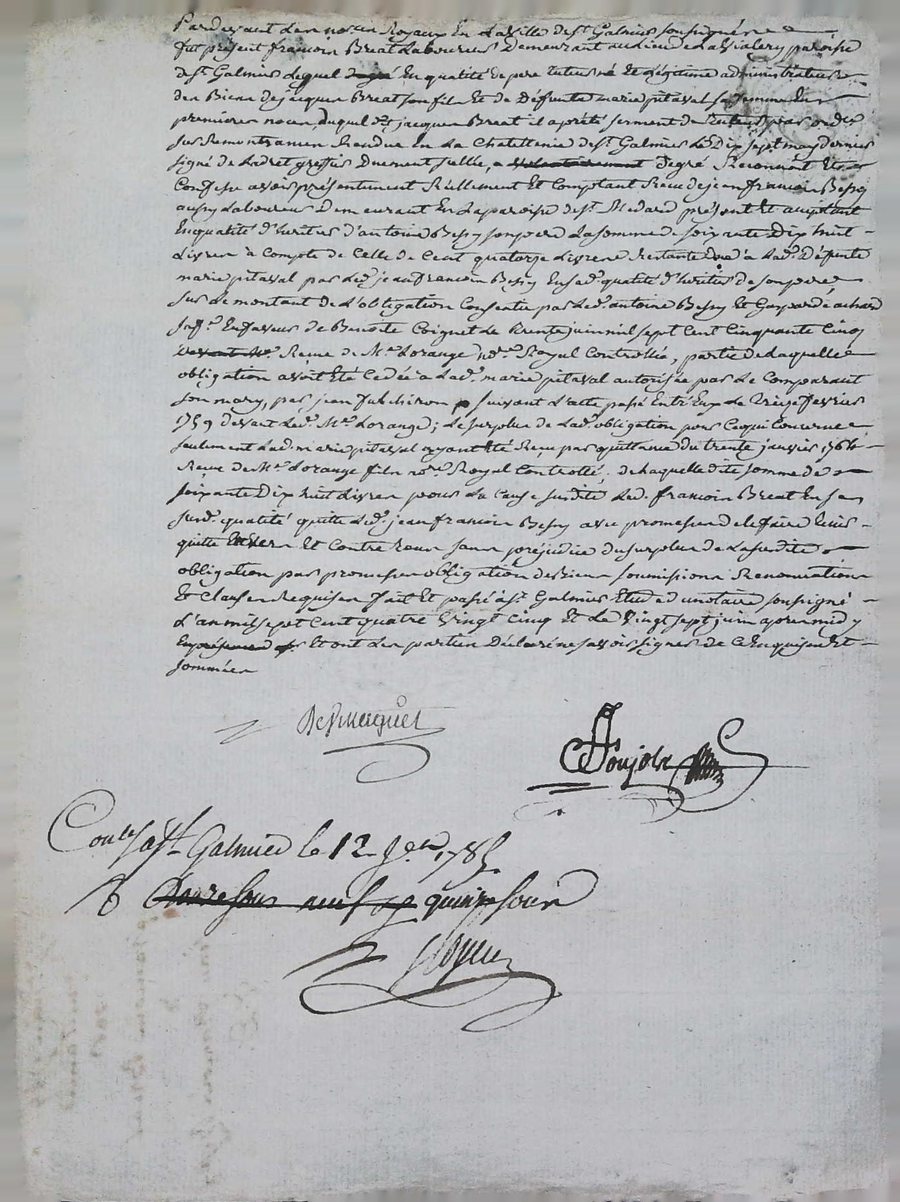 Pardevant Les notaires Royaux En La Ville de st. Galmier soussignés
fut présent francois Breat Laboureur Demeurant au lieu de La vialery paroisse
de st. Galmier Lequel En qualité de pere tuteur né Et Légitime administrateur
des Biens de jacques Breat son fils Et de Défunte marie pitaval sa femme En
premieres noces, duquel dt. jacques Breat il a prété serment de tuteur par ordce.
sur Remontrances Rendue En La Chatellenie de st. Galmier Le Dix sept may dernier
signé de Ladret greffier Duement scellée, a degré Reconnut Et
Confessé avoir présentement Réellement Et Comptant Recu de jean francois Bessy
aussy Laboureur Demeurant En La paroisse de st. Medard présent Et acceptant
En qualité d'heritier d'antoine Bessy son pere La somme de soixante Dix huit
Livres à Compte de Celle de Cent quatorze Livres Restante due à Lade. Défunte
marie pitaval par Ledt. jean francois Bessy En sade. qualité d'heritier de son pere
sur Le montant de L'obligation Consentie par Ledt. antoine Bessy Et Gasparde achard
En faveur de Benoite Coignet Le trente juin mil sept Cent Cinquante Cinq
Reçue de Me. Lorange nore. Royal Controllée, partie de Laquelle
obligation avoit Eté Cedée à Lade. marie pitaval autorisée par Le Comparant
son mary, par jean fulchiron suivant L'acte passé Entr'Eux Le Treize fevrier
1759 devant Ledt. Me. Lorange; Le surplus de Lade. obligation pour Ce qui Concerne
seulement Lade. marie pitaval ayant Eté Reçu par quittance du trente janvier 1764
Reçue de Me. Lorange fils nore. Royal Controllé, de Laquelle dite somme de
soixante Dix huit Livres pour La Cause susdite Ledt. francois Breat En sa
susde. qualité quitte Ledt. jean francois Bessy avec promesse de Le faire tenir
quitte Envers Et Contre tous sans préjudice du surplus de La susdite
obligation par promesses obligation de Biens soumissions Renonciations
Et Clauses Requises fait Et passé à st. Galmier Etude du notaire soussigné
L'an mil sept Cent quatre Vingt Cinq Et Le Vingt sept juin apres midy
Et ont Les parties Déclaré ne savoir signer de Ce Enquises Et
sommées
Ponjols
Conlé. à st. Galmier le 12 1785
R quinze sous